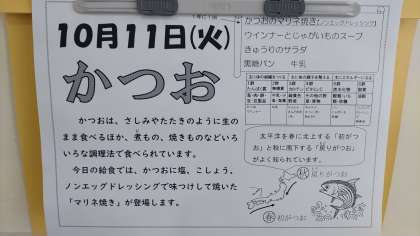 10月11日(火)
かつお
かつおは、さしみやたたきのように生の
まま食べるほか、煮もの、焼きものなどいろ
いろな調理法で食べられています。
今日の給食では、かつおに塩、こしょう、
ノンエッグドレッシングで味つけして焼いた
「マリネ焼き」が登場します。
かつおのマリネ焼き(ノンエッグドレッシング)
ウインナーとじゃがいものスープ
きゅうりのサラダ
黒糖パン 牛乳
太平洋を春に北上する「初がつ
お」と秋に南下する「戻りがつお」
がよく知られています。
秋 戻りがつお
春 初がつお